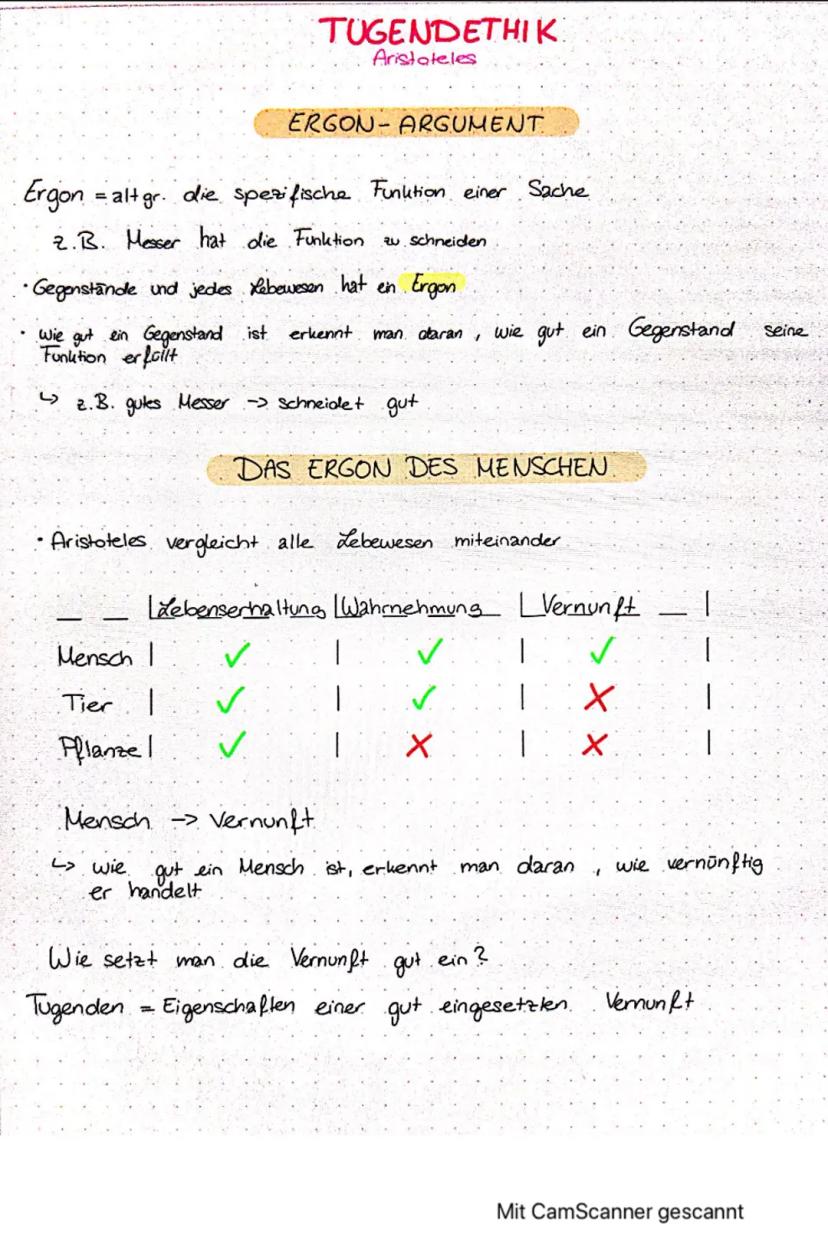 TUGENDETHIK
Aristoteles
ERGON-ARGUMENT
Ergon = altgr. die spezifische Funktion einer Sache
z.B. Messer hat die Funktion zu schneiden
· Gegenstände und jedes Lebewesen hat ein Ergon
· Wie gut ein Gegenstand ist erkennt man daran, wie gut ein Gegenstand seine
Funktion erfüllt
↳ z.B. gutes Messer -> schneidet gut
DAS ERGON DES MENSCHEN
· Aristoteles vergleicht alle Lebewesen miteinander
| Lebenserhaltung | Wahrnehmung | Vernunft |
Mensch | ✓ | ✓ | ✓ |
Tier | ✓ | ✓ | ✗ |
Pflanze | ✓ | ✗ | ✗ |
Mensch -> Vernunft
↳ wie gut ein Mensch ist, erkennt man daran, wie vernünftig
er handelt
Wie setzt man die Vernunft gut ein?
Tugenden = Eigenschaften einer gut eingesetzten Vernunft
Mit CamScanner gescannt